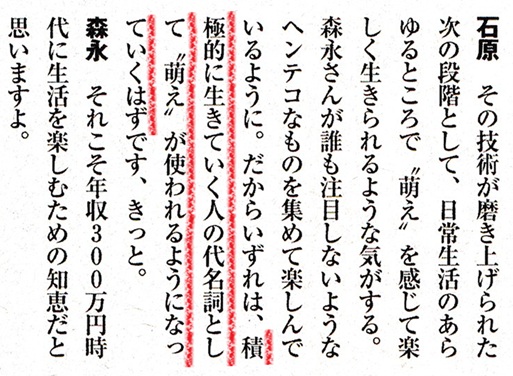 石原　その技術が磨き上げられた
次の段階として、日常生活のあら
ゆるところで〝萌え〟を感じて楽
しく生きられるような気がする。
森永さんが誰も注目しないような
ヘンテコなものを集めて楽しんで
いるように。だからいずれは、積
極的に生きていく人の代名詞とし
て〝萌え〟が使われるようになっ
ていくはずです、きっと。
森永　それこそ年収300万円時
代に生活を楽しむための知恵だと
思いますよ。